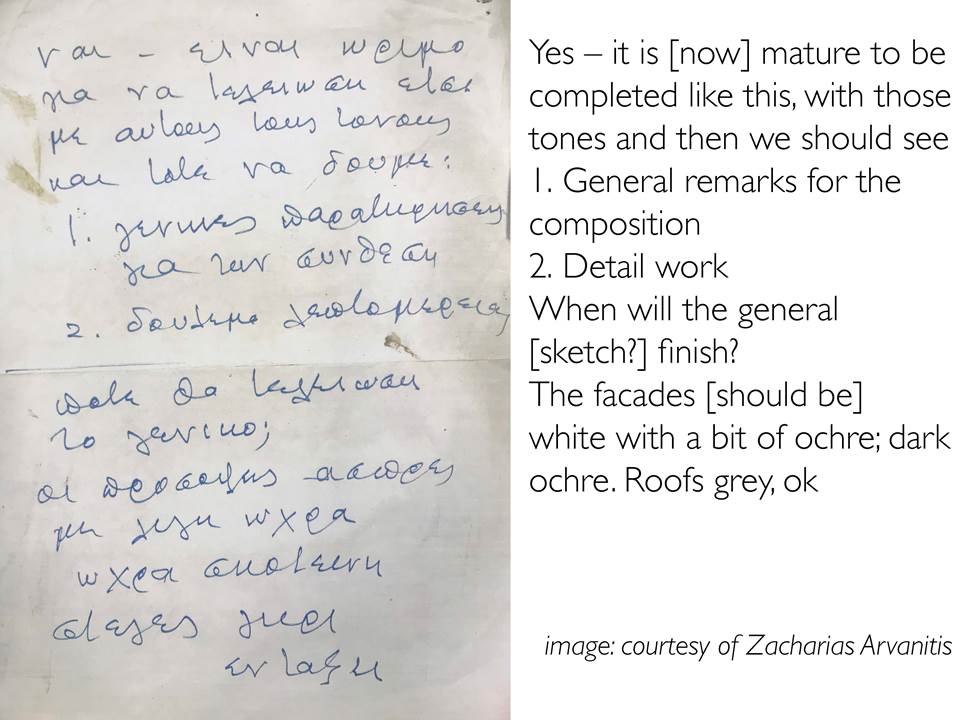 ναι – ειναι ωριμο
για να τελειωση ετσι
με αυτους τους τονους
και τοτε να δουμε:
1. γενικες παρατηρησεις
για την συνθεση
2. δουλεμα λεπτομερειες
ποτε θα τελειωση
το γενικο;
οι προσοψης ασπρες
με λιγη ωχρα
ωχρα σκοτεινη
στεγες γκρι
εν ταξει
Yes – it is [now] mature to be
completed like this, with those
tones and then we should see
1. General remarks for the
composition
2. Detail work
When will the general
[sketch?] finish?
The facades [should be]
white with a bit of ochre; dark
ochre. Roofs grey, ok
image: courtesy of Zacharias Arvanitis